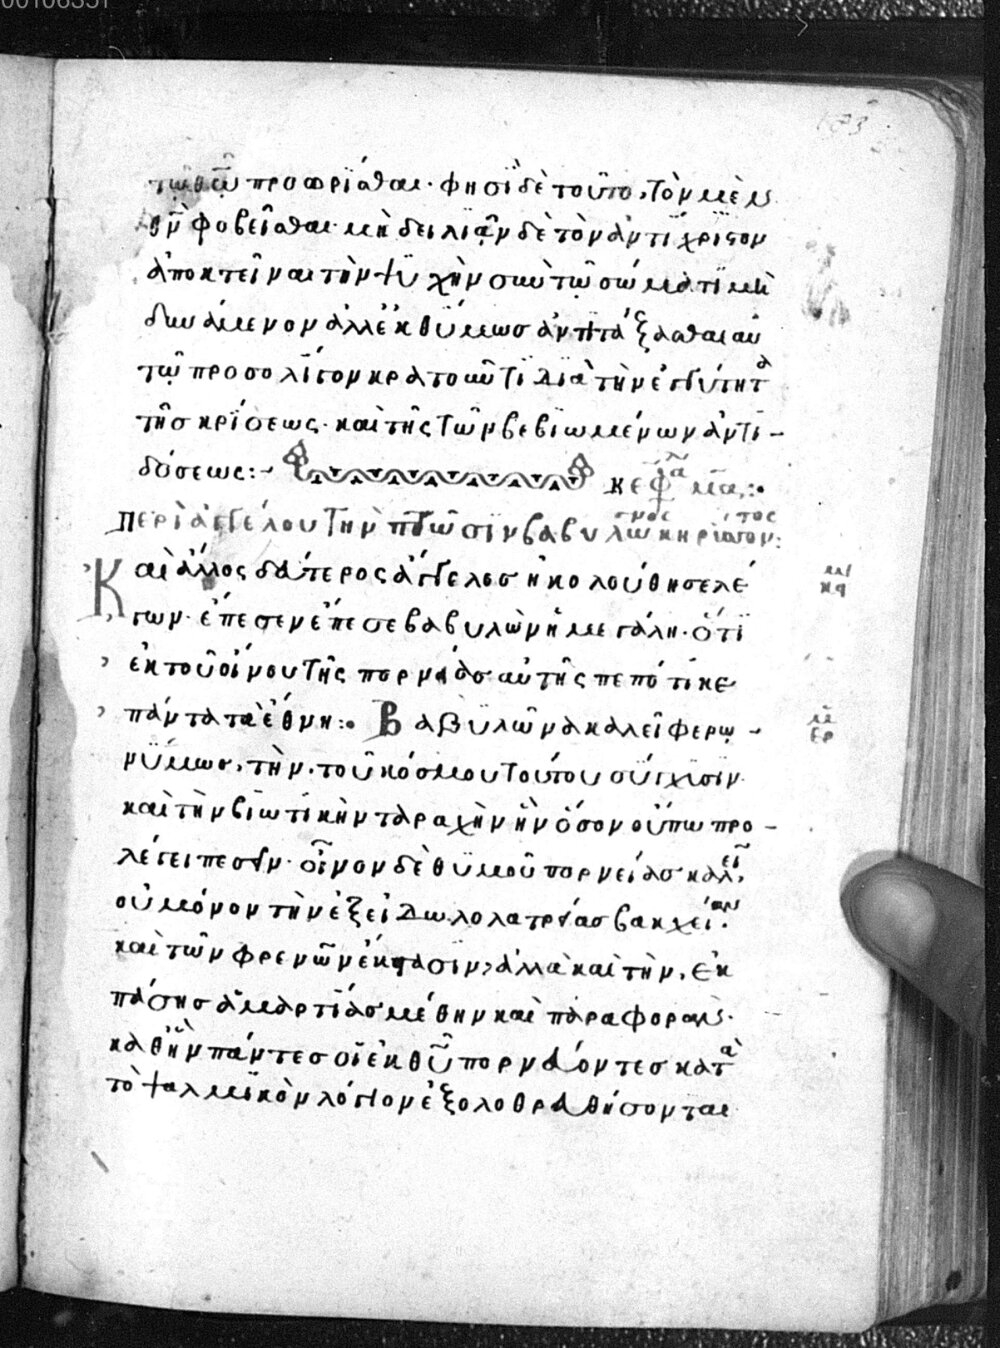 τῷ θῶ προσφρίασθαι· φησὶ δὲ τοῦτο, τὸν μὲν
θν φοβεῖσθαι· μὴ δειλιᾷν δὲ τὸν ἀντίχριστον
ἀποκτεῖναι τὴν ψυχὴν σὺν τῷ σώματι μὴ
δυνάμενον ἀλλ' ἐκθύμως ἀντιτάξασθαι αὐ
τῷ προσολίγον κρατοῦντι διὰ τὴν ἐγγύτητα
τῆς κρίσεως· καὶ τῆς τῶν βεβιωμένων ἀντι-
δόσεως:-
κεφα μα:·
περὶ ἀγγέλου τὴν πτῶσιν βαβυλῶνος κηρύττοντος:
Καὶ ἄλλος δεύτερος ἄγγελος ἠκολούθησε λέ
γων· ἔπεσεν ἔπεσε βαβυλὼν ἡ μεγάλη· ὅτι
ἐκ τοῦ οἴνου τῆς πορνείας αὐτῆς πεπότικε
πάντα τὰ ἔθνη:· Βαβυλῶνα καλεῖ φερω-
νύμως, τὴν τοῦ κόσμου τούτου σύγχισιν
καὶ τὴν βιωτικὴν ταραχὴν ἣν ὅσον οὔπω προ-
λέγει πεσεῖν· οἶνον δὲ θυμοῦ πορνείας καλεῖ,
οὐ μόνον τὴν ἐξ εἰδωλολατρείας βακχείαν·
καὶ τῶν φρενῶν ἔκστασιν, ἀλλὰ καὶ τὴν, ἐκ
πάσης ἁμαρτίας μέθην καὶ παραφοράν·
καθ' ἣν πάντες οἱ ἐκ θῦ πορνεύοντες κατὰ
τὸ ψαλμικὸν λόγιον ἐξολοθρευθήσονται